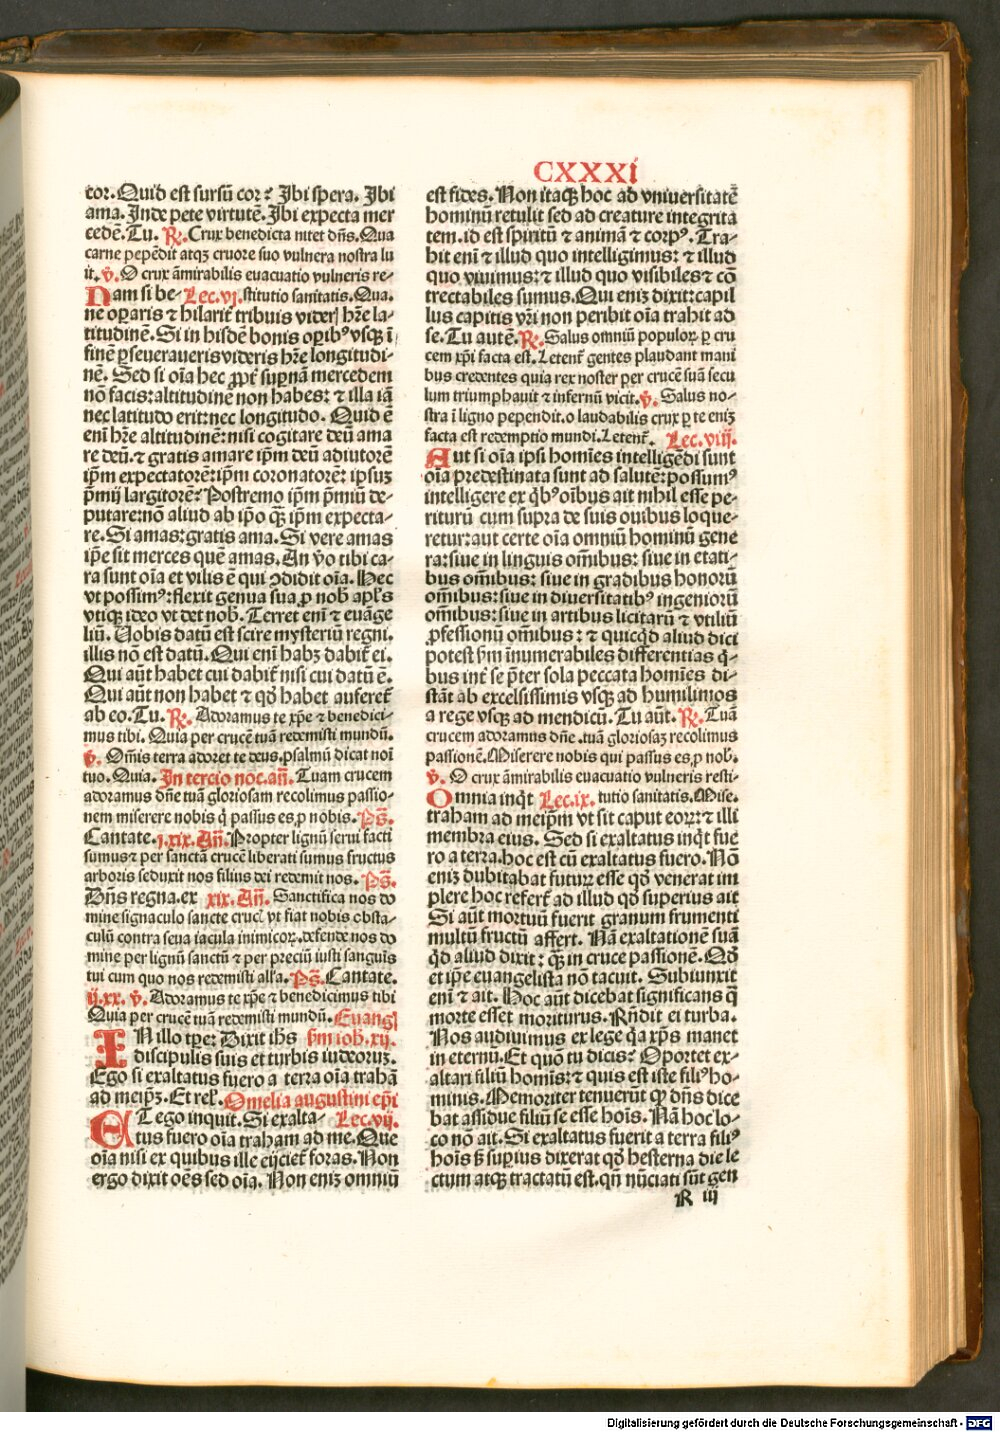 CXXXI
cor. Quid est sursū cor? Ibi spera. Ibi
ama. Inde pete virtutē. Ibi expecta mer
cedē. Tu. ℟. Crux benedicta nitet dn̄s. Qua
carne pepēdit atqꝫ cruore suo vulnera nostra la
uit. ℣. O crux āmirabilis euacuatio vulneris re-
Nam si be- Lec.vj. stitutio sanitatis. Qua.
ne oꝑaris ⁊ hilarit᷑ tribuis vider] hr̄e la-
titudinē. Si in hisdē bonis oꝑibꝰ vsqꝫ ī
finē ꝑseueraueris videris hr̄e longitudi-
nē. Sed si oīa hec ꝓpt᷑ supnā mercedem
nō facis: altitudinē non habes: ⁊ illa iā
nec latitudo erit: nec longitudo. Quid ē
enī hr̄e altitudinē: nisi cogitare deū ama
re deū. ⁊ gratis amare ip̄m deū adiutorē
ip̄m expectatorē: ip̄m coronatorē: ipsuꝫ
p̄mij largitorē? Postremo ip̄m p̄miū de-
putare: nō aliud ab ip̄o qꝫ̄ ip̄m expecta-
re. Si amas: gratis ama. Si vere amas
ip̄e sit merces quē amas. An v̄o tibi ca-
ra sunt oīa et vilis ē qui ꝯdidit oīa. Hec
vt possimꝰ: flexit genua sua ꝓ nob̄ apl̄s
vtiqꝫ ideo vt det nob̄. Terret enī ⁊ euāge
liū. Uobis datū est scire mysteriū regni.
illis nō est datū. Qui enī habꝫ dabit᷑ ei.
Qui aūt habet cui dabit᷑ nisi cui datū ē.
Qui aūt non habet ⁊ qd̄ habet auferet᷑
ab eo. Tu. ℟. Adoramus te xp̄e ⁊ benedici-
mus tibi. Quia per crucē tuā redemisti mundū.
℣. Om̄is terra adoret te deus. psalmū dicat noī
tuo. Quia. In tercio noc. an̄. Tuam crucem
adoramus dn̄e tuā gloriosam recolimus passio-
nem miserere nobis q̄ passus es ꝓ nobis. Ps̄.
Cantate. j.xix. An̄. Propter lignū serui facti
sumus ⁊ per sanctā crucē liberati sumus fructus
arboris seduxit nos filius dei redemit nos. Ps̄.
Dn̄s regna. ex xix. An̄. Sanctifica nos do
mine signaculo sancte cruc] vt fiat nobis obsta-
culū contra seua iacula inimicoꝝ. defende nos do
mine per lignū sanctū ⁊ per preciū iusti sanguis
tui cum quo nos redemisti all'a. Ps̄. Cantate.
ij.xx. ℣. Adoramus te xp̄e ⁊ benedicimus tibi
Quia per crucē tuā redemisti mundū. Euang]
IN illo tꝑe: Dixit ih̄s s̄m ioh̄. xij.
discipulis suis et turbis iudeoruꝫ.
Ego si exaltatus fuero a terra oīa trahā
ad meip̄ꝫ. Et rel'. Omelia augustini ep̄i
ET ego inquit. Si exalta- Lec.vij.
tus fuero oīa traham ad me. Que
oīa nisi ex quibus ille eijciet᷑ foras. Non
ergo dixit oēs sed oīa. Non eniꝫ omniū
est fides. Non itaqꝫ hoc ad vniuersitatē
hominū retulit sed ad creature integrita
tem. id est spiritū ⁊ animā ⁊ corpꝰ. Tra-
hit enī ⁊ illud quo intelligimus: ⁊ illud
quo viuimus: ⁊ illud quo visibiles ⁊ cō
trectabiles sumus. Qui eniꝫ dixit: capil
lus capitis vr̄i non peribit oīa trahit ad
se. Tu autē. ℟. Salus omniū populoꝝ ꝑ cru
cem xp̄i facta est. Letent᷑ gentes plaudant mani
bus credentes quia rex noster per crucē suā secu
lum triumphauit ⁊ infernū vicit. ℣. Salus no-
stra ī ligno pependit. o laudabilis crux ꝑ te eniꝫ
facta est redemptio mundi. Letent᷑. Lec.viij.
Aut si oīa ipsi homīes intelligēdi sunt
oīa predestinata sunt ad salutē: possumꝰ
intelligere ex qb̄ꝰ oībus ait nihil esse pe-
riturū cum supra de suis ouibus loque-
retur: aut certe oīa omniū hominū gene
ra: siue in linguis om̄ibus: siue in etati-
bus om̄ibus: siue in gradibus honorū
om̄ibus: siue in diuersitatibꝰ ingeniorū
om̄ibus: siue in artibus licitarū ⁊ vtiliū
ꝓfessionū om̄ibus: ⁊ quicqd̄ aliud dici
potest s̄m īnumerabiles differentias q̄-
bus int᷑ se p̄ter sola peccata homīes di-
stāt ab excelsissimis vsqꝫ ad humilimos
a rege vsqꝫ ad mendicū. Tu aūt. ℟. Tuā
crucem adoramus dn̄e. tuā gloriosaꝫ recolimus
passionē. Miserere nobis qui passus es ꝓ nob̄.
℣. O crux āmirabilis euacuatio vulneris resti-
Omnia inqt̄ Lec.ix. tutio sanitatis. Mise.
traham ad meip̄m vt sit caput eoꝝ: ⁊ illi
membra eius. Sed si exaltatus inqt̄ fue
ro a terra. hoc est cū exaltatus fuero. Nō
eniꝫ dubitabat futuꝝ esse qd̄ venerat im
plere hoc refert᷑ ad illud qd̄ superius ait
Si aūt mortuū fuerit granum frumenti
multū fructū affert. Nā exaltationē suā
qd̄ aliud dixit: qꝫ̄ in cruce passionē. Qd̄
et ip̄e euangelista nō tacuit. Subiunxit
enī ⁊ ait. Hoc aūt dicebat significans q̄
morte esset moriturus. Rn̄dit ei turba.
Nos audiuimus ex lege qa xp̄s manet
in eternū. Et quō tu dicis? Oportet ex-
altari filiū homīs: ⁊ quis est iste filiꝰ ho-
minis. Memoriter tenuerūt qꝫ dn̄s dice
bat assidue filiū se esse hoīs. Nā hoc lo-
co nō ait. Si exaltatus fuerit a terra filiꝰ
hoīs s̄ superius dixerat qd̄ hesterna die le
ctum atqꝫ tractatū est. qn̄ nūciati sūt gen
R iij
Digitalisierung gefördert durch die Deutsche Forschungsgemeinschaft - DFG